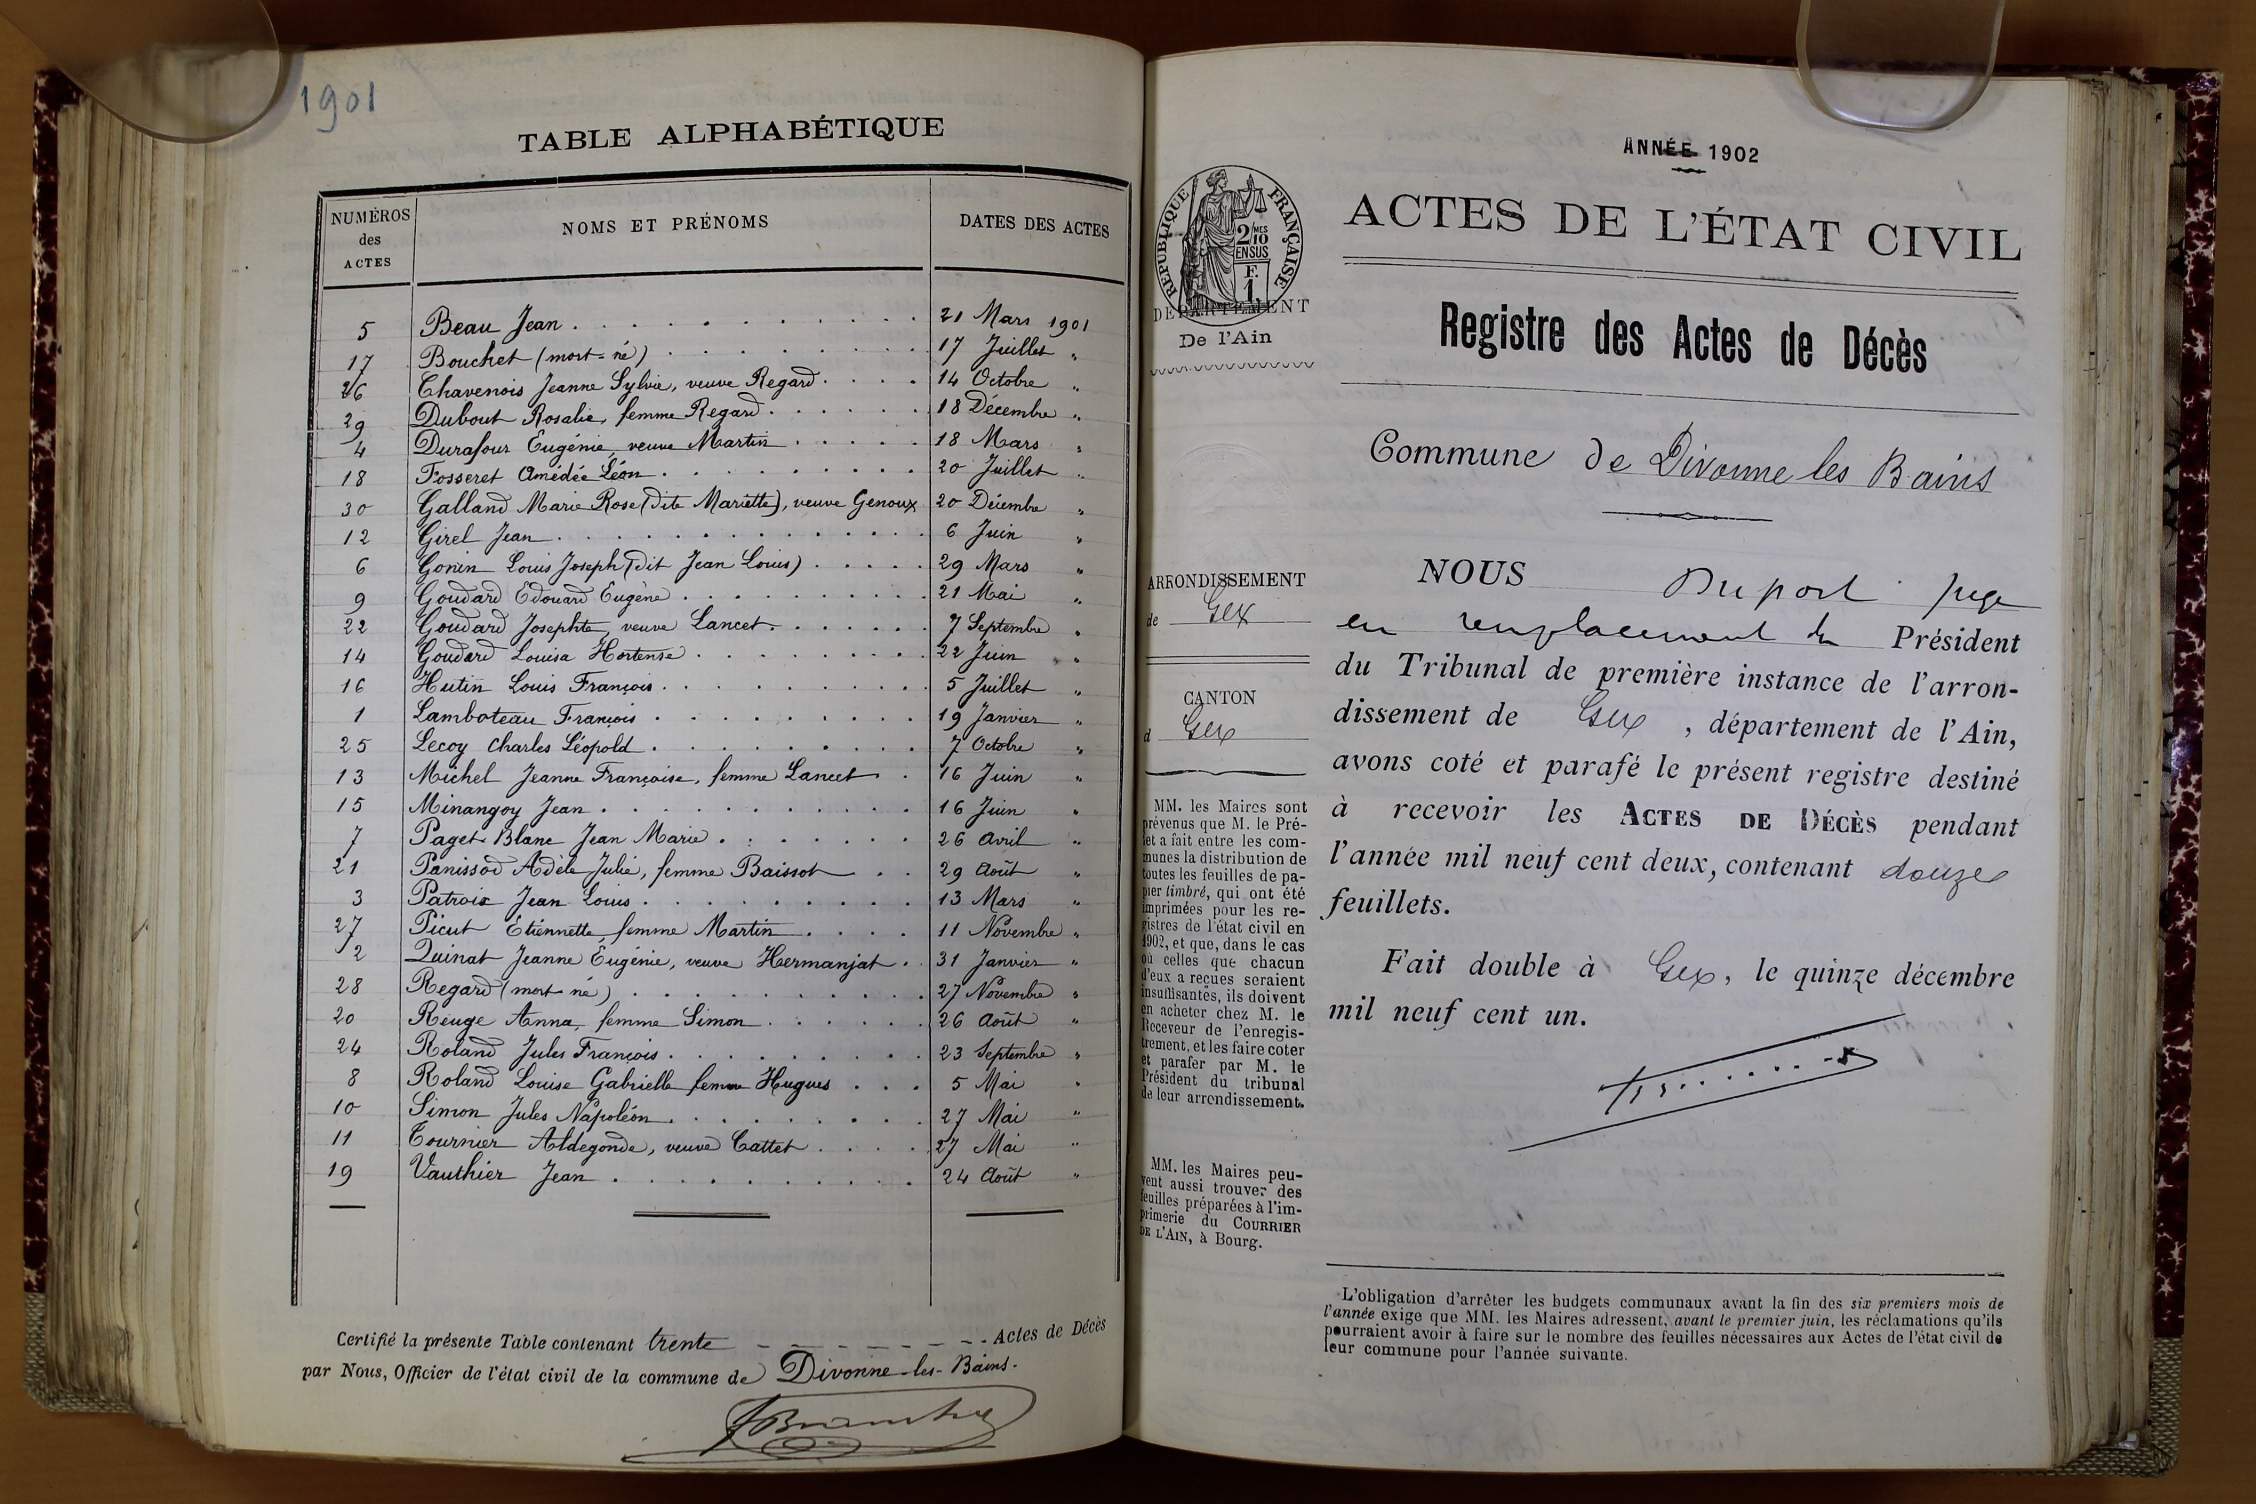 1901
TABLE ALPHABÉTIQUE
NUMÉROS
des
ACTES
NOMS ET PRÉNOMS
DATES DES ACTES
5 Beau Jean 21 Mars 1901
17 Bouchet (mort-né) 17 Juillet "
26 Chavenois Jeanne Sylvie, veuve Regard 14 Octobre "
29 Dubout Rosalie, femme Regard 18 Décembre "
4 Durafour Eugénie, veuve Martin 18 Mars "
18 Fosseret Amédée Léon 20 Juillet "
30 Galland Marie Rose (dite Mariette), veuve Genoux 20 Décembre "
12 Girel Jean 6 Juin "
6 Gonin Louis Joseph (dit Jean Louis) 29 Mars "
9 Goudard Edouard Eugène 21 Mai "
22 Goudard Josephte, veuve Lancet 7 Septembre "
14 Goudard Louisa Hortense 22 Juin "
16 Hutin Louis François 5 Juillet "
1 Lamboteau François 19 Janvier "
25 Lecoy Charles Léopold 7 Octobre "
13 Michel Jeanne Françoise, femme Lancet 16 Juin "
15 Minangoy Jean 16 Juin "
7 Paget-Blanc Jean Marie 26 Avril "
21 Panissod Adèle Julie, femme Baissot 29 Août "
3 Patroix Jean Louis 13 Mars "
27 Picut Etiennette, femme Martin 11 Novembre "
2 Quinat Jeanne Eugénie, veuve Hermanjat 31 Janvier "
28 Regard (mort-né) 27 Novembre "
20 Reuge Anna, femme Simon 26 Août "
24 Roland Jules François 23 Septembre "
8 Roland Louise Gabrielle femme Hugues 5 Mai "
10 Simon Jules Napoléon 27 Mai "
11 Tournier Aldegonde, veuve Cattet 27 Mai "
19 Vauthier Jean 24 Août "
Certifié la présente Table contenant trente Actes de Décès
par Nous, Officier de l'état civil de la commune de Divonne-les-Bains.
RÉPUBLIQUE FRANÇAISE
2/10 MES
EN SUS
F.
1
DÉPARTEMENT
De l'Ain
ARRONDISSEMENT
de Gex
CANTON
d Gex
MM. les Maires sont
prévenus que M. le Pré-
fet a fait entre les com-
munes la distribution de
toutes les feuilles de pa-
pier timbré, qui ont été
imprimées pour les re-
gistres de l'état civil en
1902, et que, dans le cas
où celles que chacun
d'eux a reçues seraient
insuffisantes, ils doivent
en acheter chez M. le
Receveur de l'enregis-
trement, et les faire coter
et parafer par M. le
Président du tribunal
de leur arrondissement.
MM. les Maires peu-
vent aussi trouver des
feuilles préparées à l'im-
primerie du COURRIER
DE L'AIN, à Bourg.
ANNÉE 1902
ACTES DE L'ÉTAT CIVIL
Registre des Actes de Décès
Commune de Divonne les Bains
NOUS Duport juge
en remplacement du Président
du Tribunal de première instance de l'arron-
dissement de Gex, département de l'Ain,
avons coté et parafé le présent registre destiné
à recevoir les ACTES DE DÉCÈS pendant
l'année mil neuf cent deux, contenant douze
feuillets.
Fait double à Gex, le quinze décembre
mil neuf cent un.
L'obligation d'arrêter les budgets communaux avant la fin des six premiers mois de
l'année exige que MM. les Maires adressent, avant le premier juin, les réclamations qu'ils
pourraient avoir à faire sur le nombre des feuilles nécessaires aux Actes de l'état civil de
leur commune pour l'année suivante.